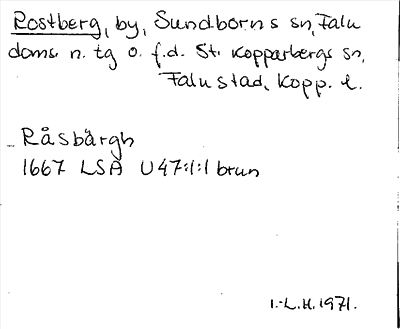 Rostberg, by, Sundborns sn, Falu
doms. n. tg o. f.d. St. Kopparbergs sn,
Falu stad, Kopp. l.
Råsbärgh
1667 LSA U47:1:1 brun
I.-L.H. 1971.